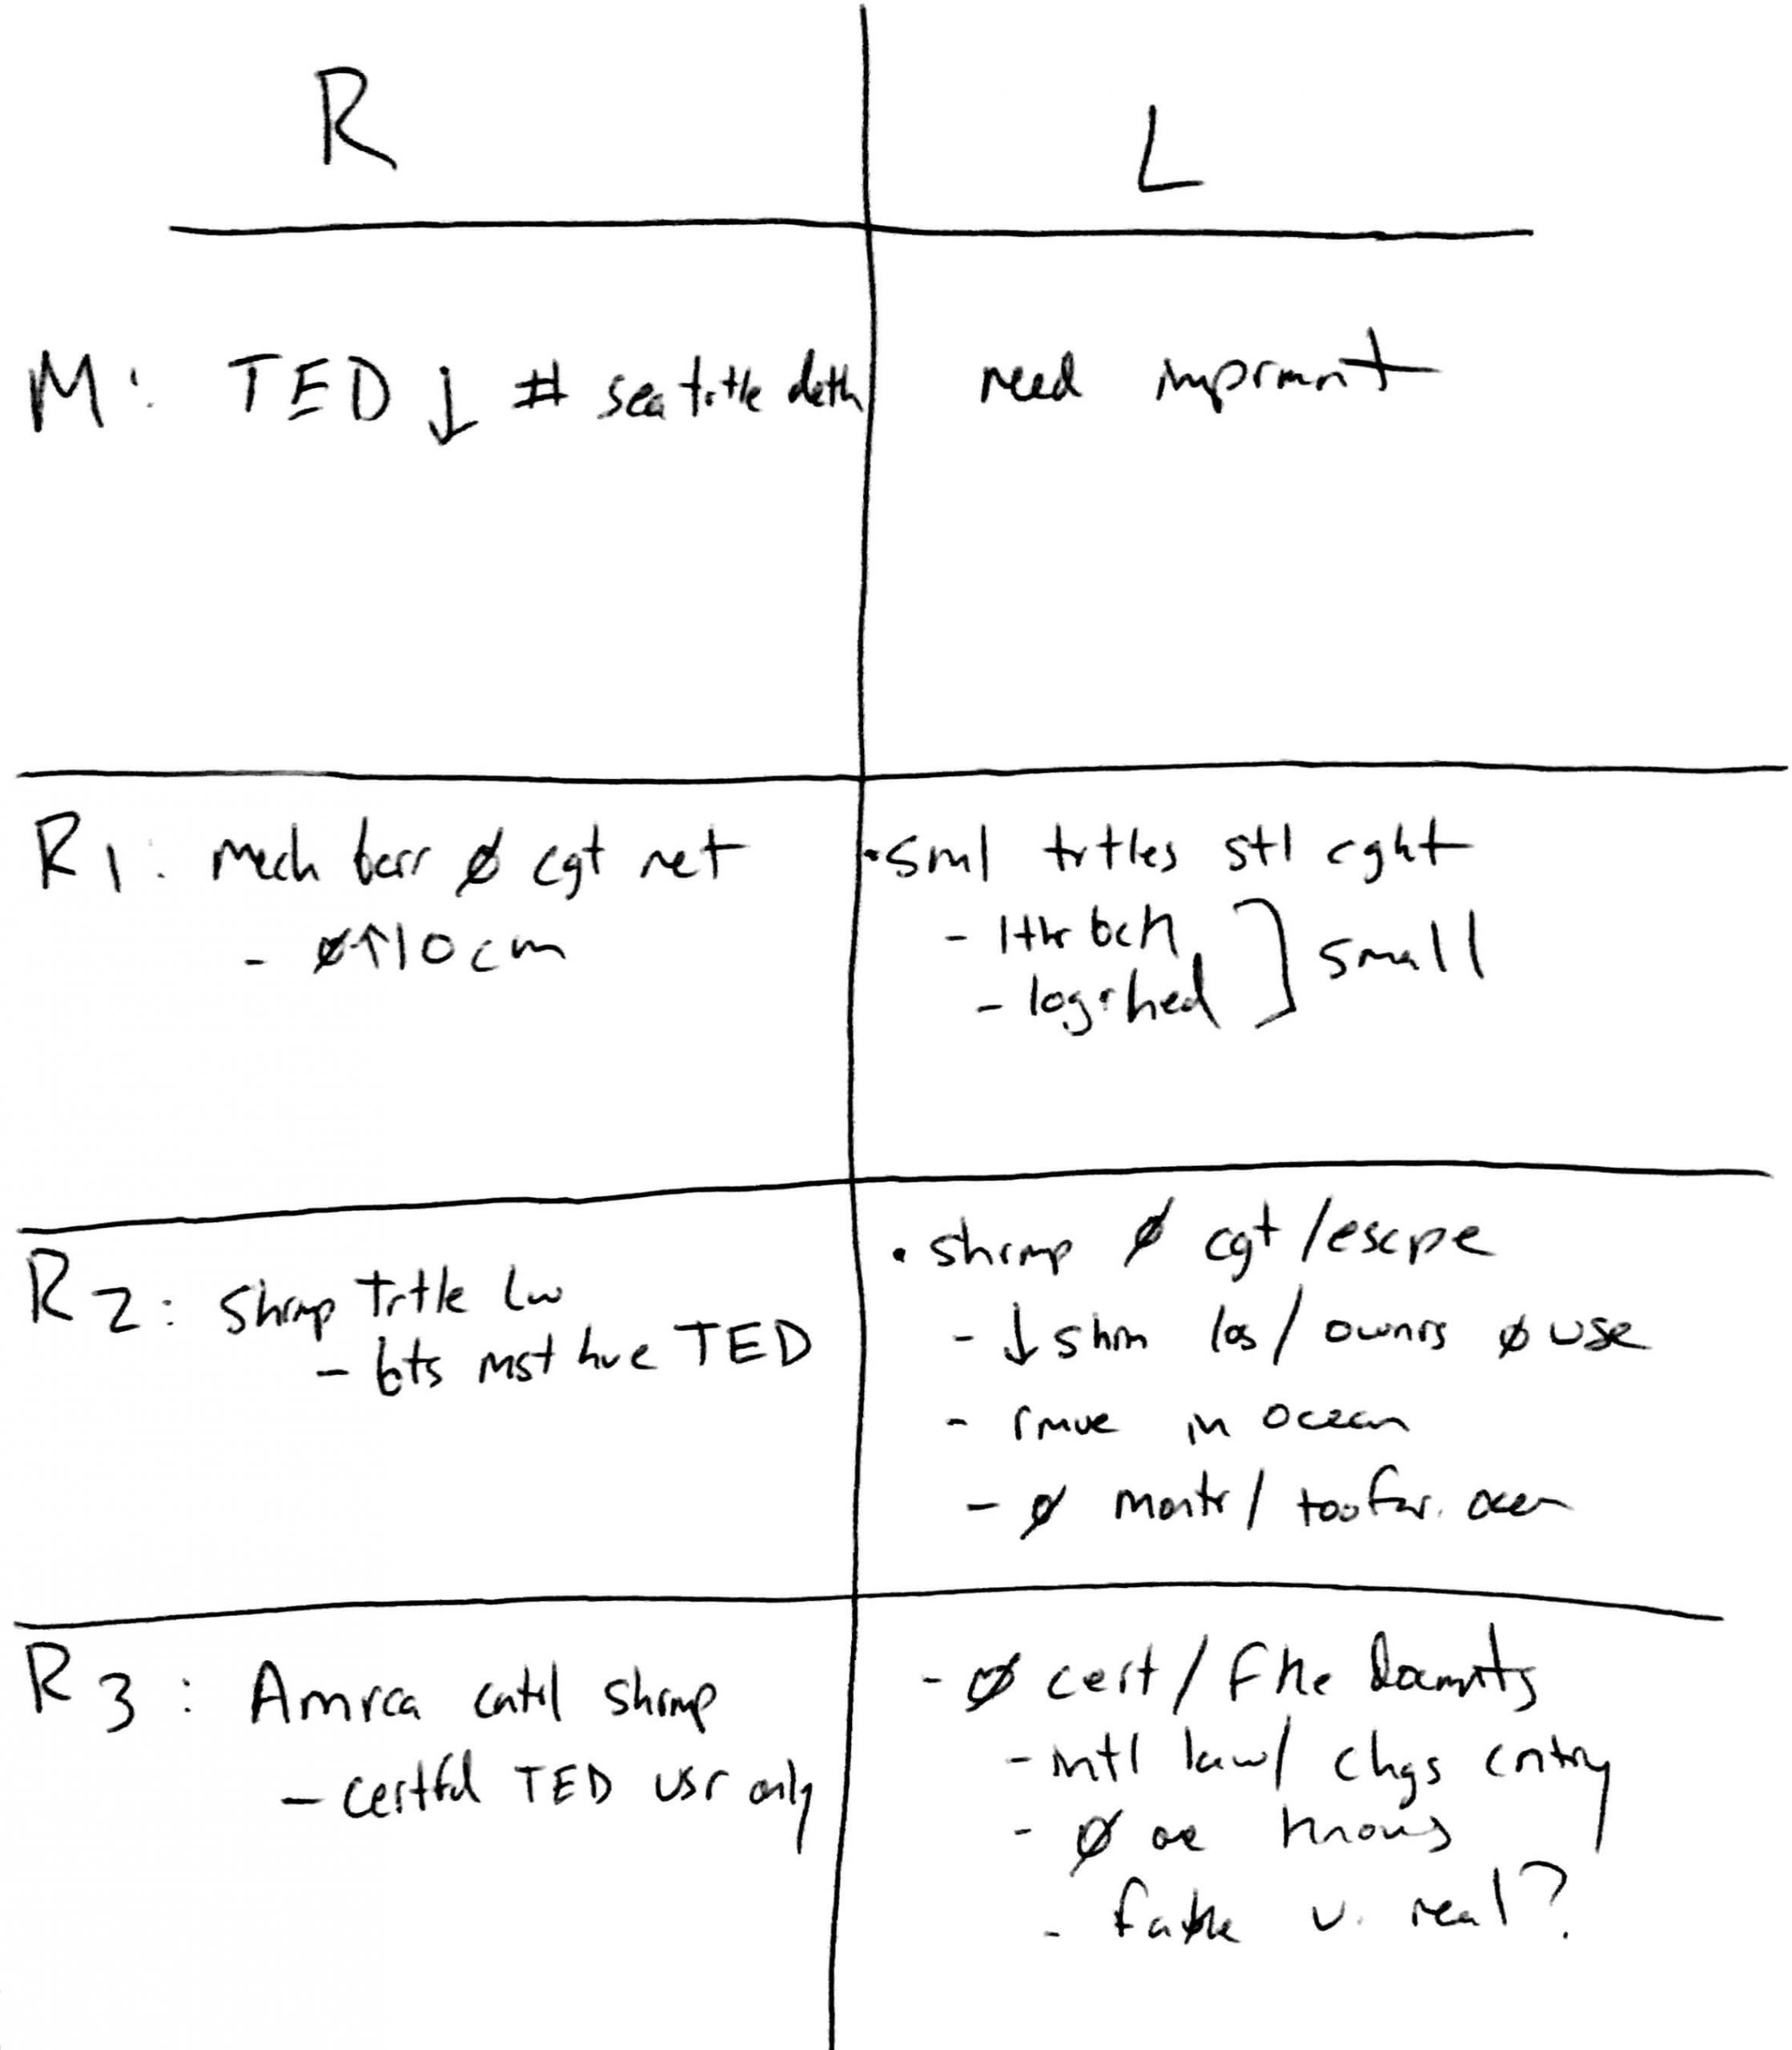 R
L
M: TED ↓ # sea trtle deth
need imprmnt
R1: mech barr Ø cgt net
- Ø↑10cm
• sml trtles stl cght
- lthr bck
- logrhed ] small
R2: Shrmp Trtle Lw
- bts mst hve TED
• shrmp Ø cgt/escpe
- ↓ shrm los/ ownrs Ø use
- rmve in ocean
- Ø montr/ too far. ocen
R3: Amrca cntrl shrmp
- certfd TED usr only
- Ø cert/ fke Docmnts
- intl law/ chgs cntry
- Ø one knows
- fake v. real?